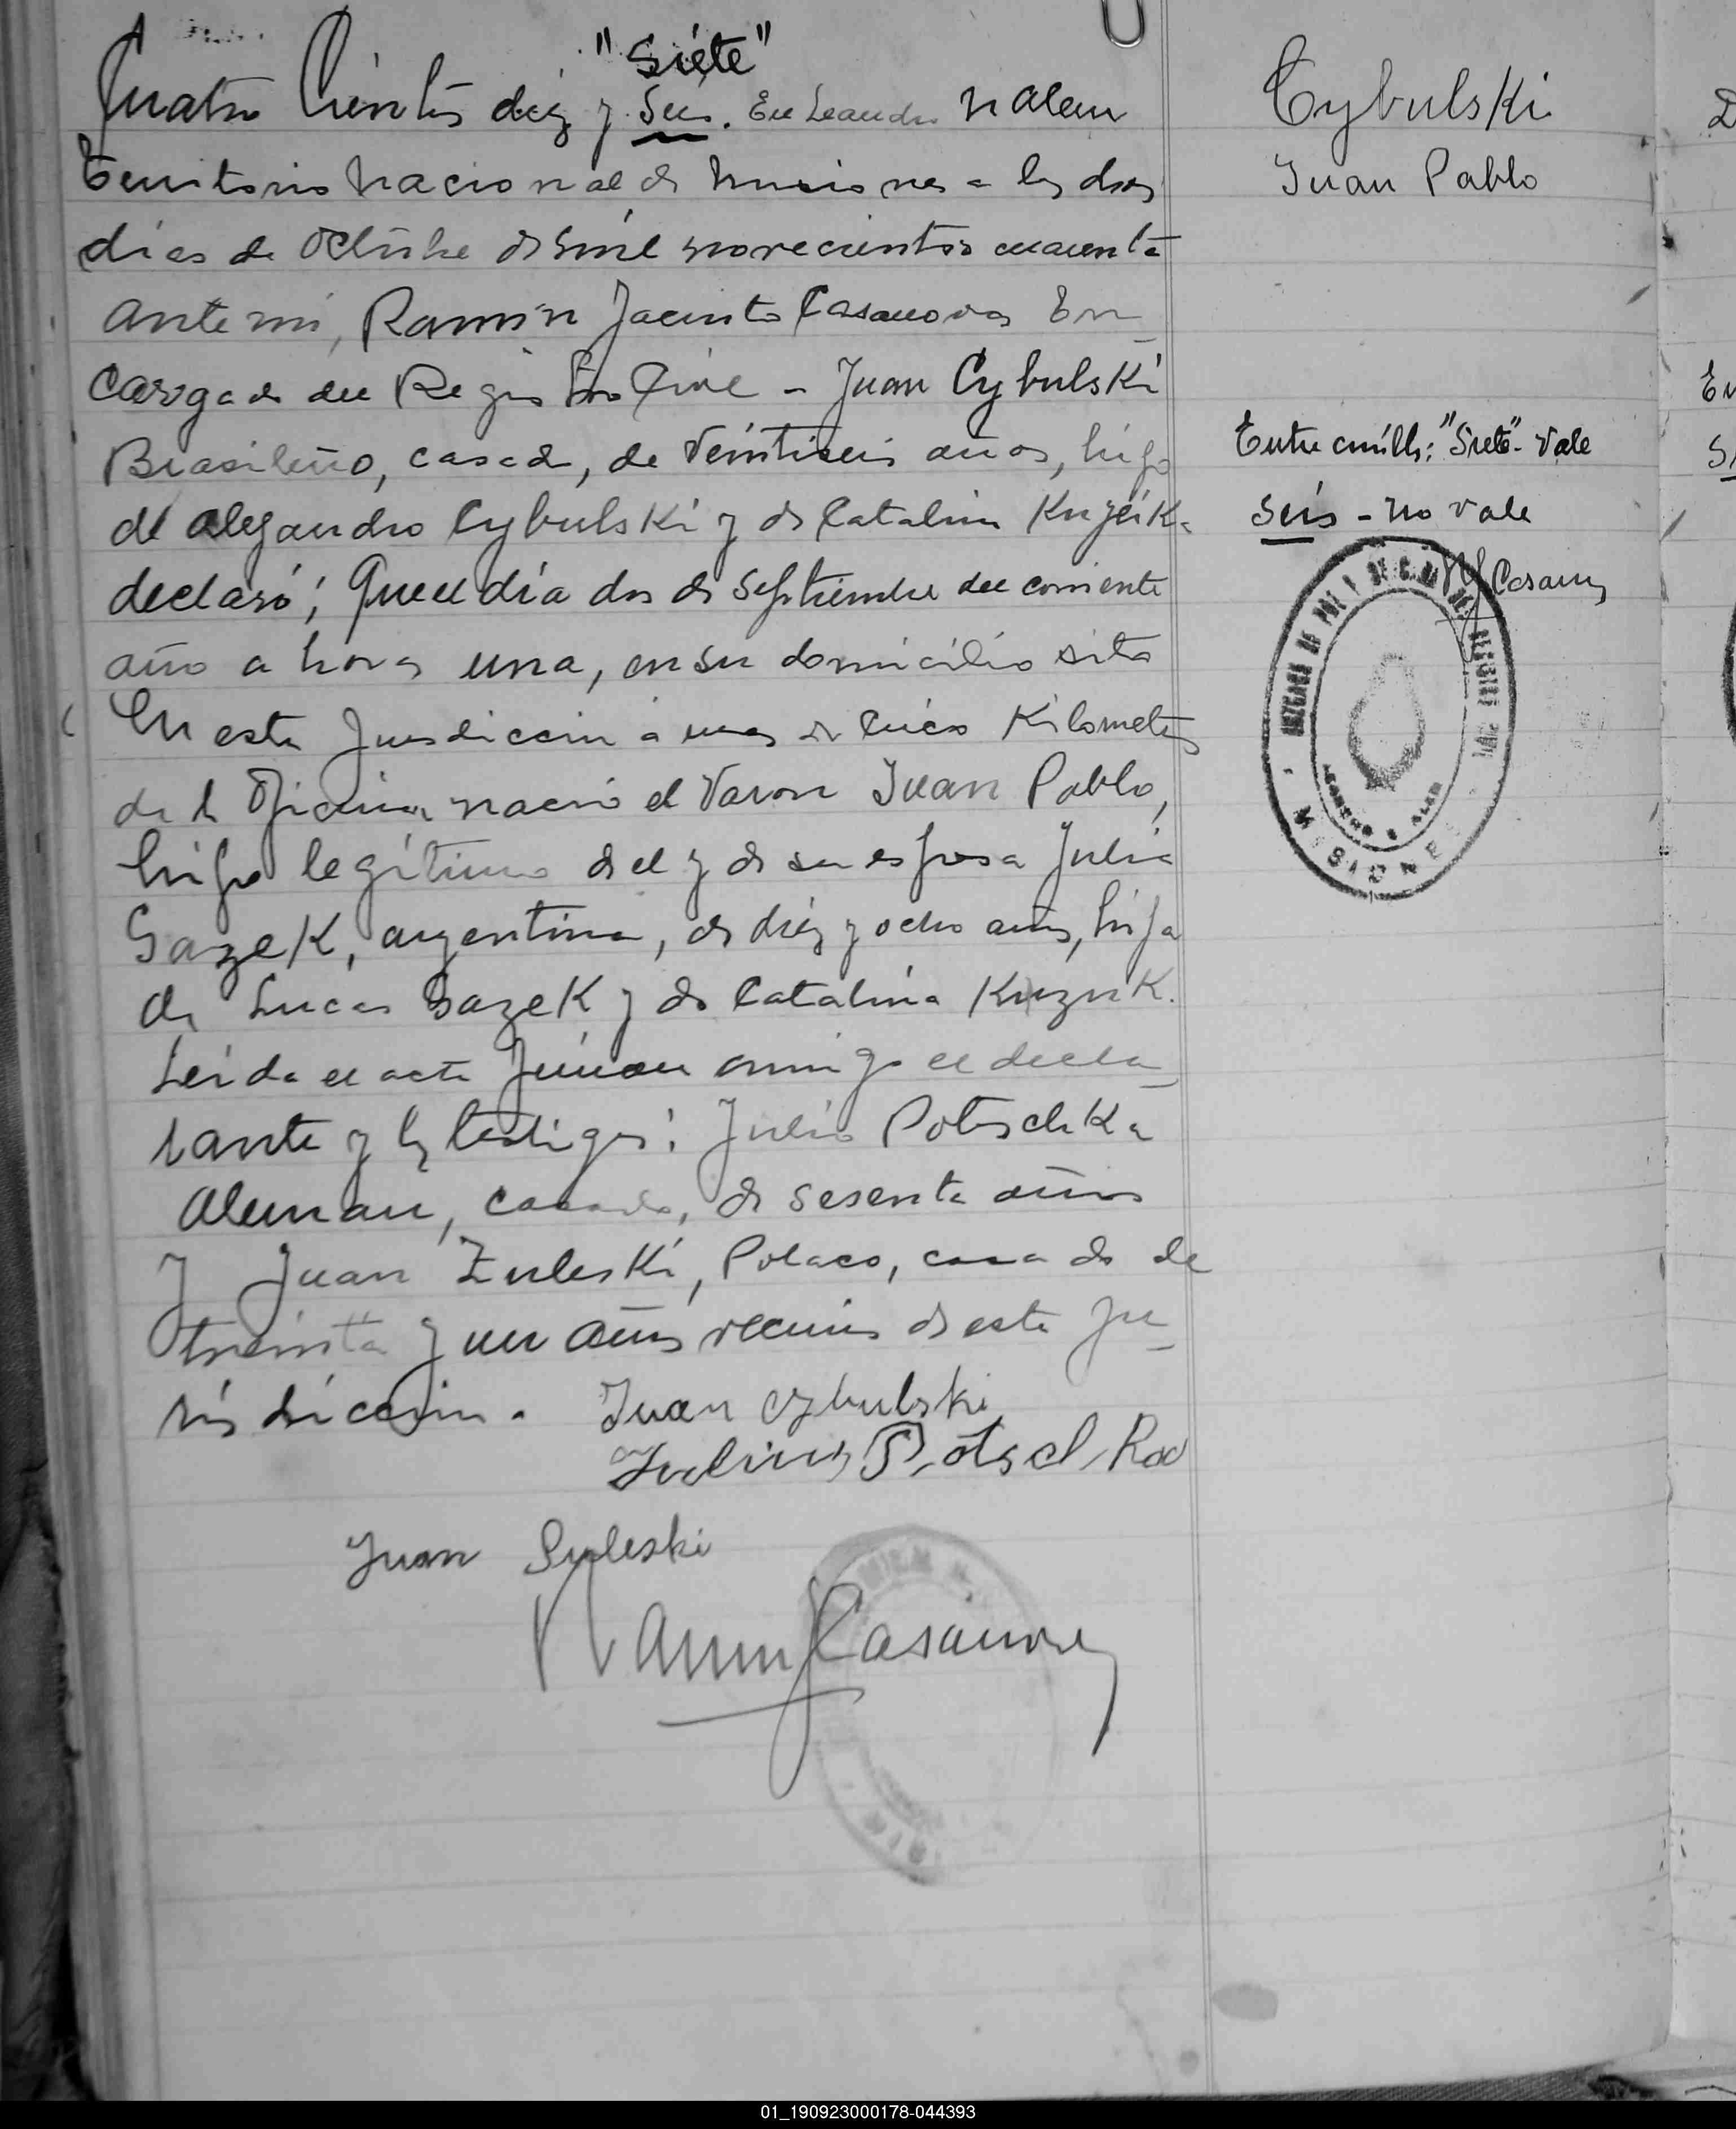 "Siete"
Cuatro Cientos diez y Seis. En Leandro N Alem
Territorio Nacional de Misiones a los dos
días de Octubre de mil novecientos cuarenta
ante mi, Ramón Jacinto Casanova En-
cargado del Registro Civil - Juan Cybulski
Brasileño, casado, de Veintiseis años, hijo
de Alejandro Cybulski y de Catalina
declaró; Que el día dos de Septiembre del corriente
año a hora una, en su domicilio sito
en esta Jurisdiccion a unos Cinco Kilometros
de la Oficina nació el Varon Juan Pablo,
hijo legítimo de el y de su esposa Julia
Gazek, argentina, de diez y ocho años, hija
de Lucas Gazek y de Catalina Kuzuk.
Leida el acta firman conmigo el decla-
rante y los testigos: Julio Potschka
Aleman, casado, de sesenta años
y Juan Zuleski, Polaco, casado de
treinta y un años vecinos de esta Ju-
risdiccion. Juan Cybulski
Julius Potschka
Juan Suleski
Ramon J Casanova
Cybulski
Juan Pablo
Entre comills: "Siete" - Vale
Seis - no vale
RJCasanova
MISIONES
01_190923000178-044393